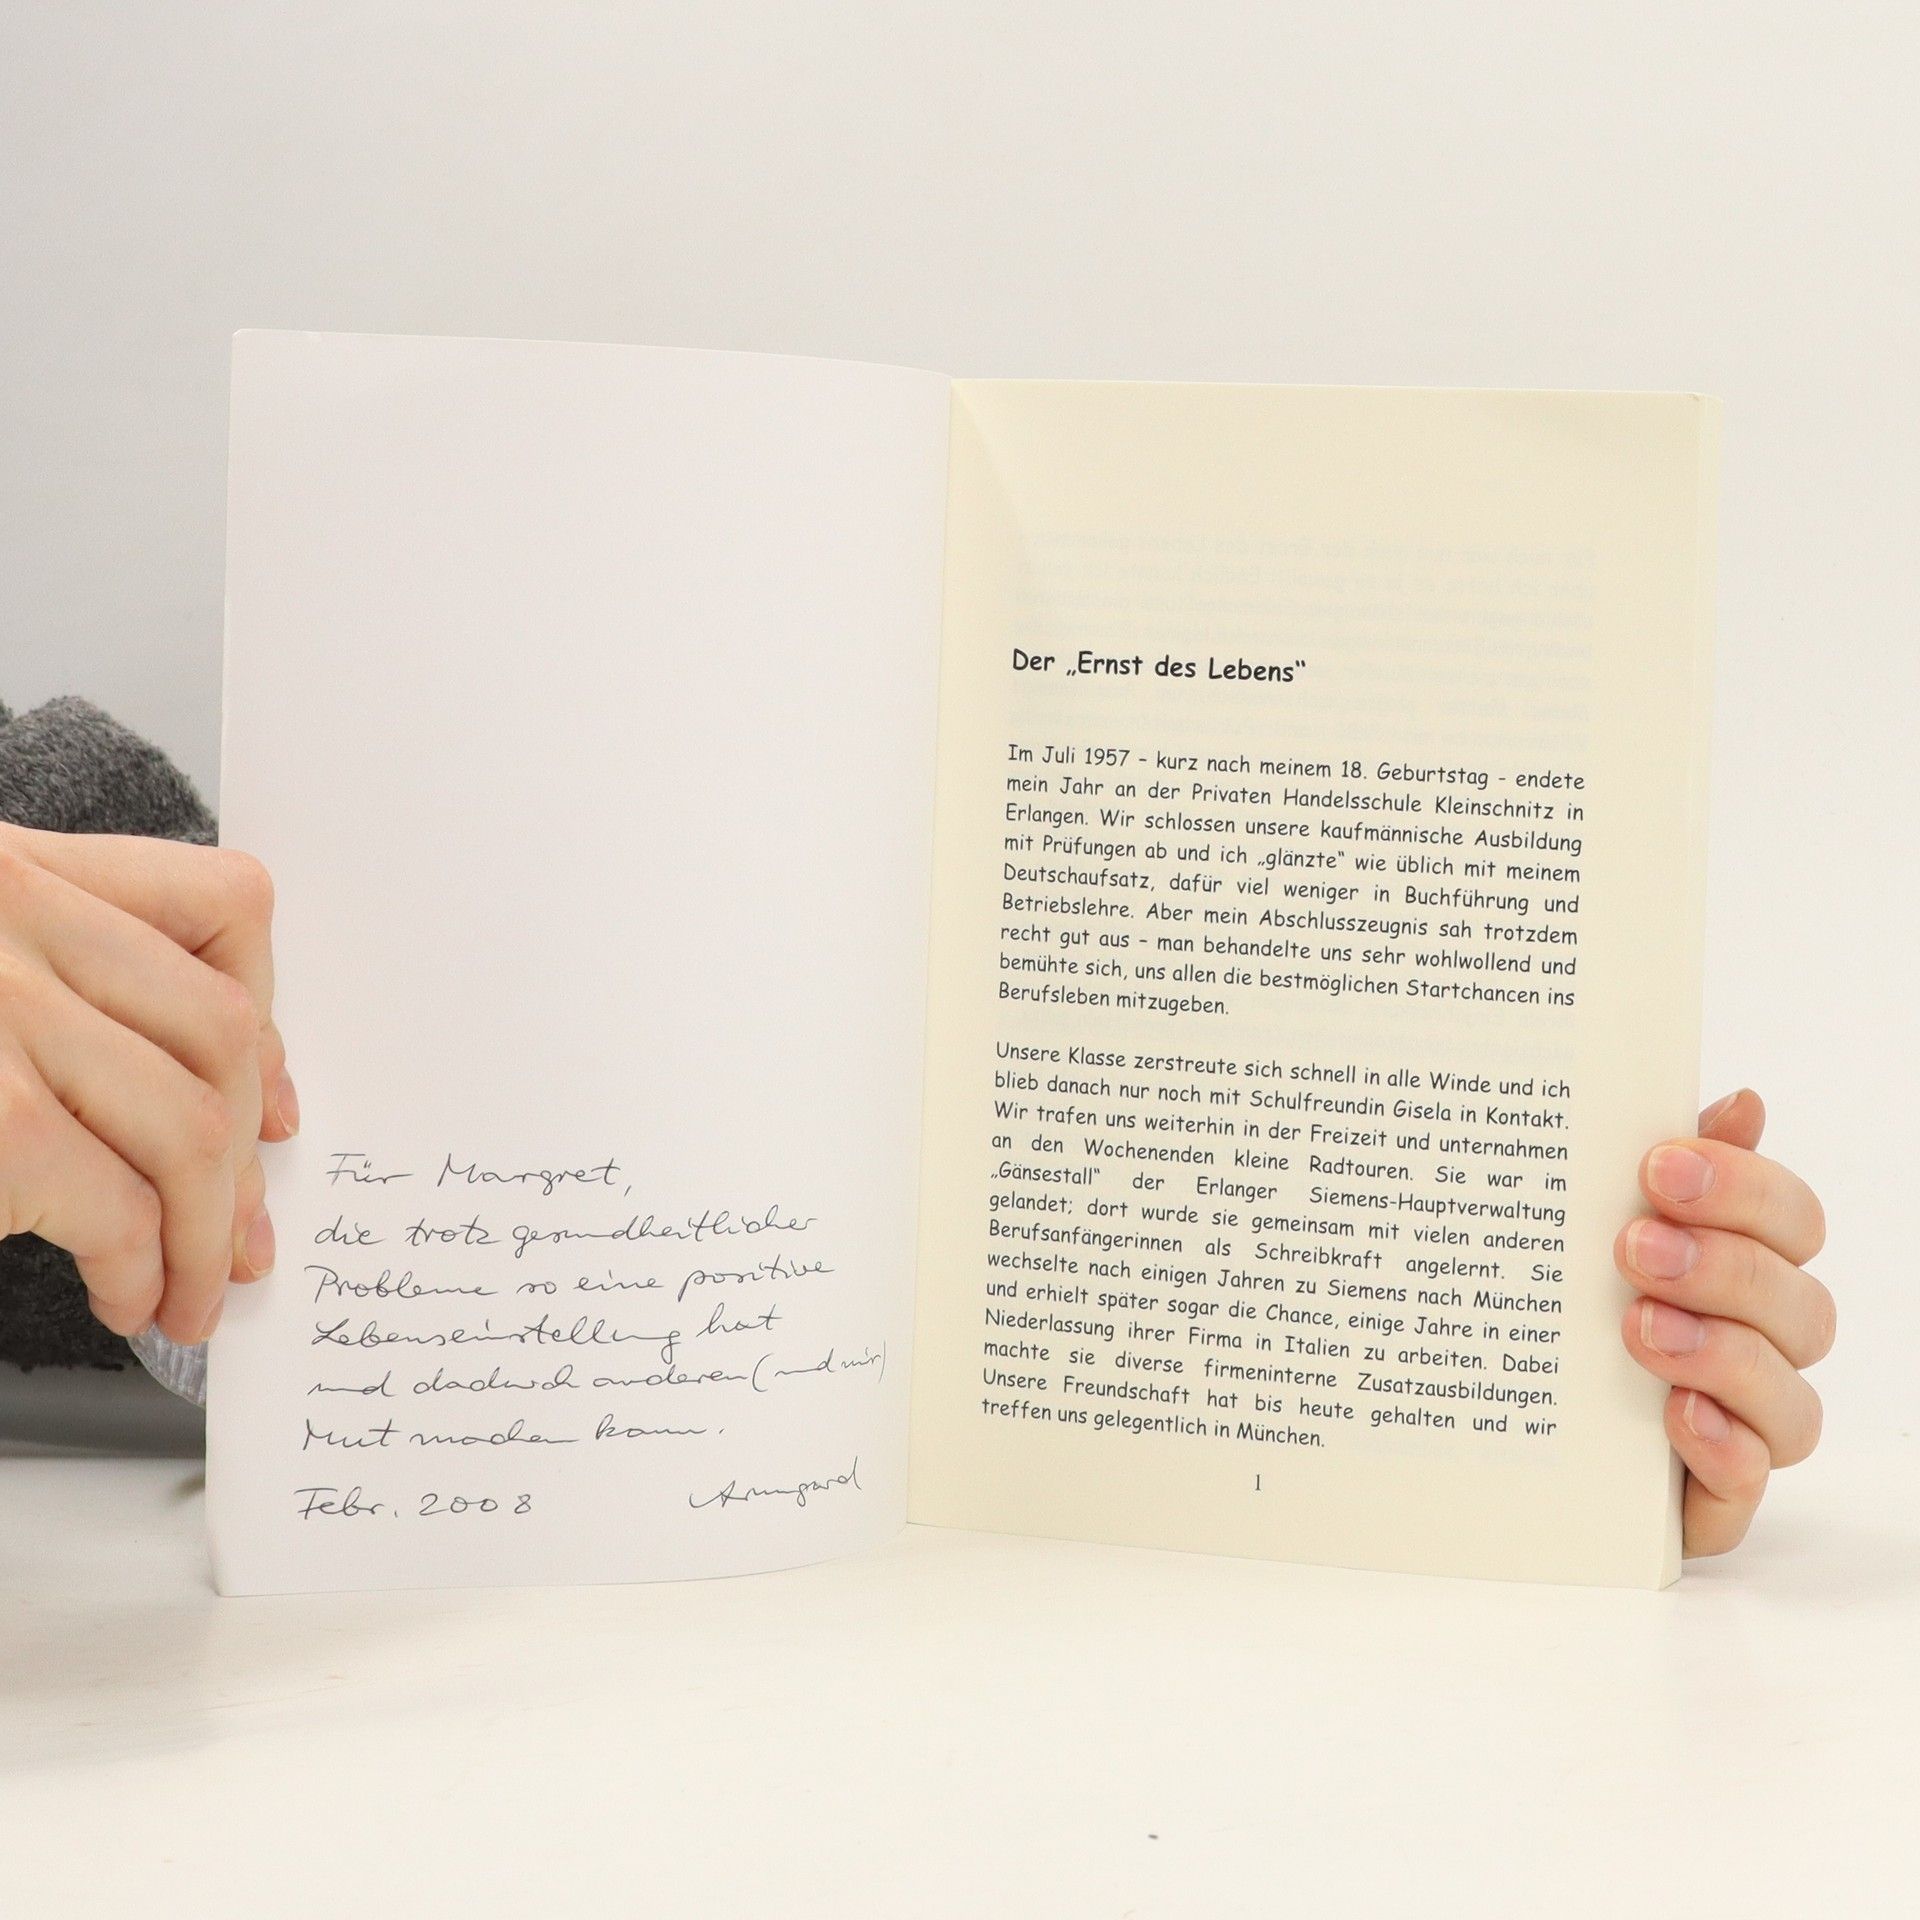 Für Margret,
die trotz gesundheitlicher
Probleme so eine positive
Lebenseinstellung hat
und dadurch anderen (und mir)
Mut machen kann.
Febr. 2008 Armgard
Der „Ernst des Lebens“
Im Juli 1957 – kurz nach meinem 18. Geburtstag - endete
mein Jahr an der Privaten Handelsschule Kleinschnitz in
Erlangen. Wir schlossen unsere kaufmännische Ausbildung
mit Prüfungen ab und ich „glänzte“ wie üblich mit meinem
Deutschaufsatz, dafür viel weniger in Buchführung und
Betriebslehre. Aber mein Abschlusszeugnis sah trotzdem
recht gut aus – man behandelte uns sehr wohlwollend und
bemühte sich, uns allen die bestmöglichen Startchancen ins
Berufsleben mitzugeben.
Unsere Klasse zerstreute sich schnell in alle Winde und ich
blieb danach nur noch mit Schulfreundin Gisela in Kontakt.
Wir trafen uns weiterhin in der Freizeit und unternahmen
an den Wochenenden kleine Radtouren. Sie war im
„Gänsestall“ der Erlanger Siemens-Hauptverwaltung
gelandet; dort wurde sie gemeinsam mit vielen anderen
Berufsanfängerinnen als Schreibkraft angelernt. Sie
wechselte nach einigen Jahren zu Siemens nach München
und erhielt später sogar die Chance, einige Jahre in einer
Niederlassung ihrer Firma in Italien zu arbeiten. Dabei
machte sie diverse firmeninterne Zusatzausbildungen.
Unsere Freundschaft hat bis heute gehalten und wir
treffen uns gelegentlich in München.
1